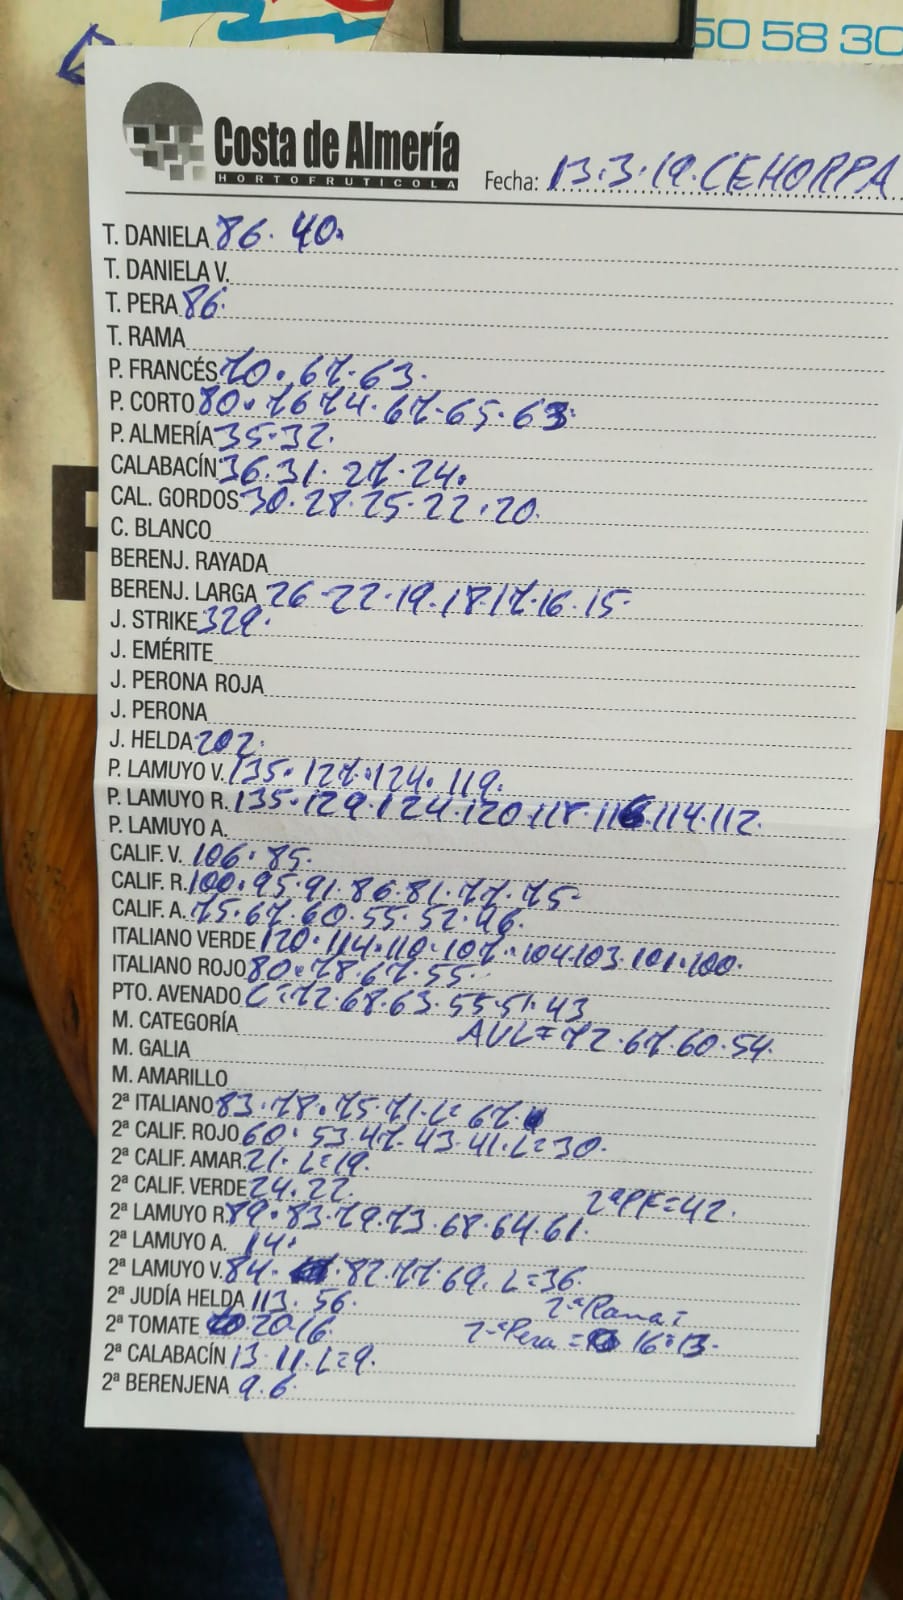 50 58 30
Costa de Almería
HORTOFRUTICOLA
Fecha: 13.3.19. CEHORPA
T. DANIELA 86. 40.
T. DANIELA V.
T. PERA 86.
T. RAMA
P. FRANCÉS 70. 67. 63.
P. CORTO 80. 76 74. 67. 65. 63.
P. ALMERÍA 35. 32.
CALABACÍN 36. 31. 27. 24.
CAL. GORDOS 30. 28. 25. 22. 20.
C. BLANCO
BERENJ. RAYADA
BERENJ. LARGA 26. 22. 19. 18. 17. 16. 15.
J. STRIKE 329.
J. EMÉRITE
J. PERONA ROJA
J. PERONA
J. HELDA 202.
P. LAMUYO V. 135. 127. 124. 119.
P. LAMUYO R. 135. 129. 124. 120. 118. 116. 114. 112.
P. LAMUYO A.
CALIF. V. 106. 85.
CALIF. R. 100. 95. 91. 86. 81. 77. 75.
CALIF. A. 75. 67. 60. 55. 52. 46.
ITALIANO VERDE 120. 114. 110. 107. 104. 103. 101. 100.
ITALIANO ROJO 80. 78. 67. 55.
PTO. AVENADO C=72. 68. 63. 55. 51. 43
M. CATEGORÍA AVL=72. 67. 60. 54.
M. GALIA
M. AMARILLO
2ª ITALIANO 83. 78. 75. 71. L=67.
2ª CALIF. ROJO 60. 53. 47. 43. 41. L=30.
2ª CALIF. AMAR. 21. L=19.
2ª CALIF. VERDE 24. 22. 2ªPF=42.
2ª LAMUYO R. 89. 83. 79. 73. 68. 64. 61.
2ª LAMUYO A. 14.
2ª LAMUYO V. 84. 82. 77. 69. L=36.
2ª JUDÍA HELDA 113. 56. 2ªRama=
2ª TOMATE 20. 16. 2ªPera= 16. 13.
2ª CALABACÍN 13. 11. L=9.
2ª BERENJENA 9. 6.